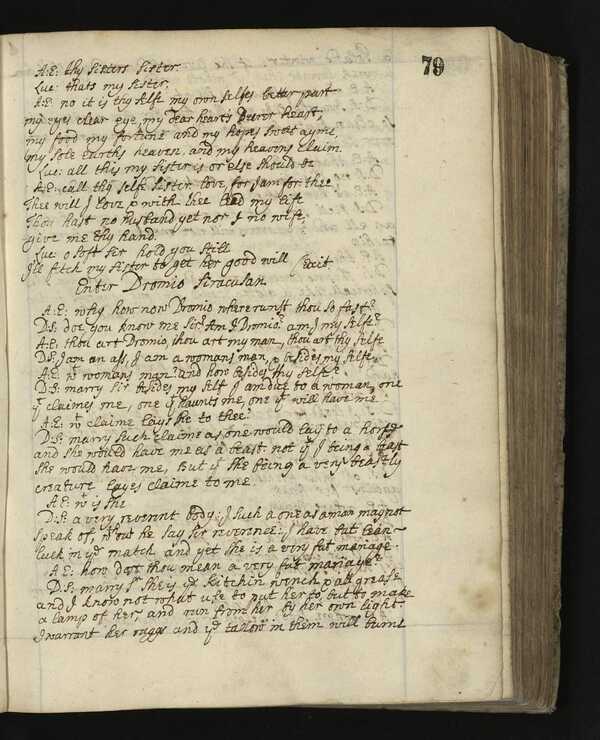 79
A:E: thy sisters sister.
Luc: thats my sister.
A:E: no it is thy selfe my own selfes better part
my eyes clear eye, my dear hearts dearer heart,
my food my fortune and my hopes sweet ayme,
my sole earths heaven, and my heavens claim.
Luc: all this my sister is or else should be
A:E: call thy selfe sister love, for I am for thee
Thee will I love & with thee lead my life
Thou hast no husband yet nor I no wife,
give me thy hand.
Luc: o soft sir hold you still
I'll fetch my sister to get her good will Exit
Enter Dromio Siracusan
A:E: why how now Dromio where runst thou so fast?
D:S: doe you know me Sr? Am I Dromio? am I my selfe?
A:E: thou art Dromio, thou art my man, thou art thy selfe
D:S: I am an ass, I am a womans man, & besides my selfe
A:E: wt womans man? and how besides thy selfe?
D:S: marry Sir besides my self I am due to a woman, one
yt claimes me, one yt haunts me, one yt will have me
A:E: wt claime layes she to thee?
D:S: marry such claime as one would lay to a horse
and she would have me as a beast. not yt I being a beast
she would have me, but yt she being a very beastly
creature layes claime to me.
A:E: wt is she
D:S: a very reverent body: I such a one as a man may not
speak of, without he say sir reverence: I have but lean
luck in ye match and yet she is a very fat mariage.
A:E: how doe thou mean a very fat mariage?
D:S: marry Sr she is ye kitchin wench & all grease
and I know not what use to put her to, but to make
a lamp of her, and run from her by her own light.
I warrant her raggs and ye tallow in them will burne